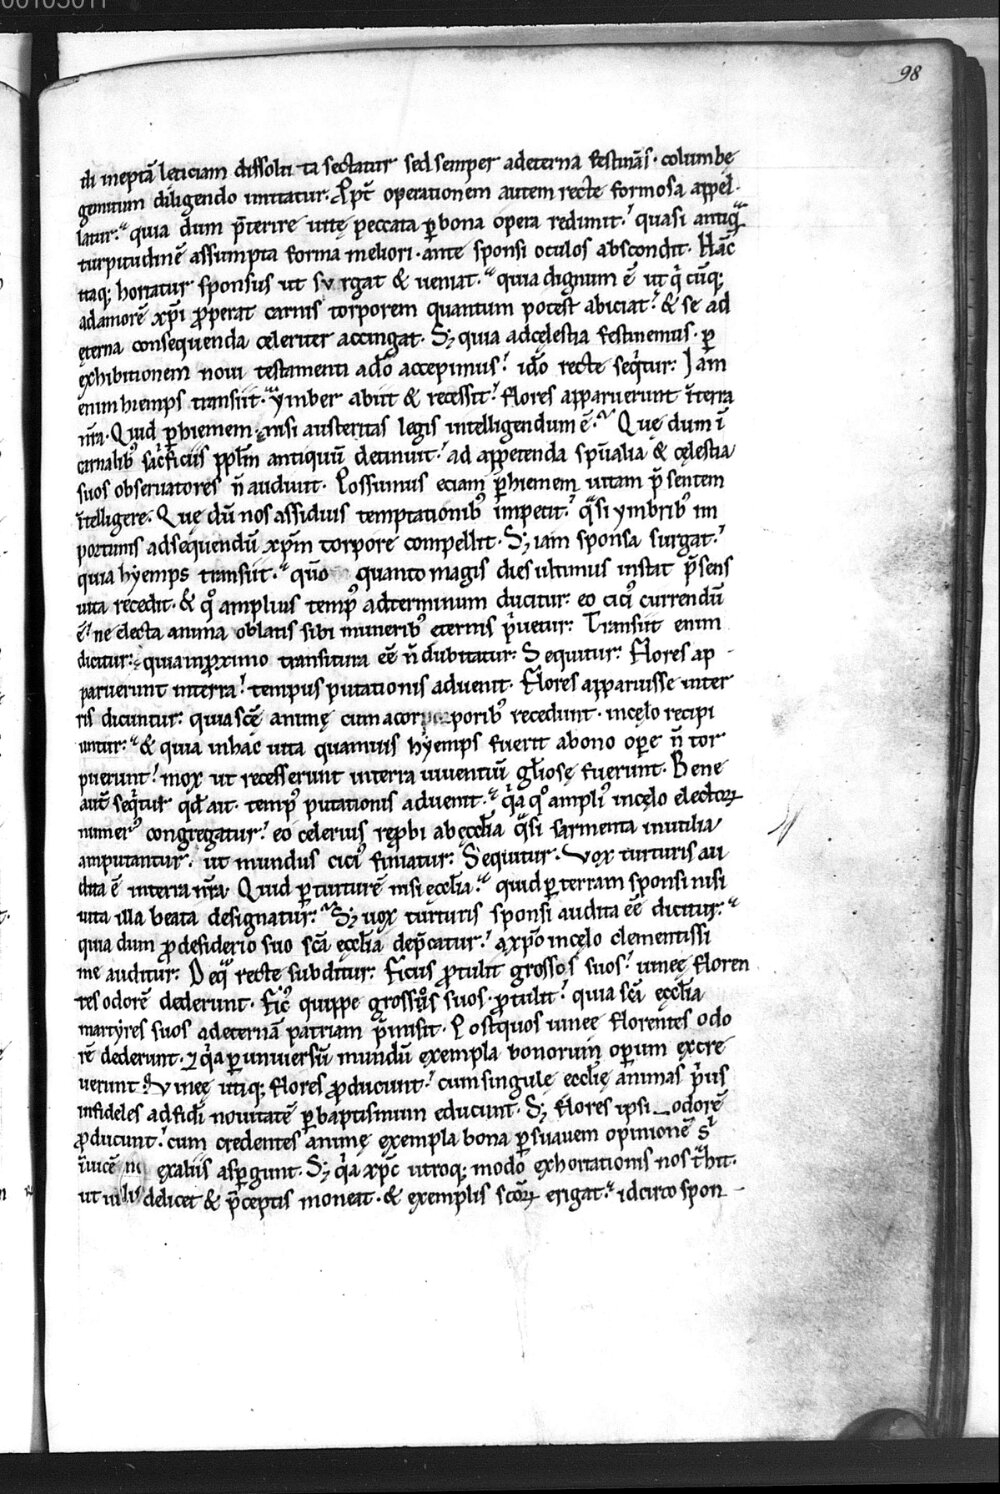 98
di ineptā leticiam dissoluta sectatur sed semper adeterna festinās· columbę
gemitum diligendo imitatur· Ppt̄ operationem autem recte formosa appel·
latur: quia dum p̄terite uitę peccata ꝑ bona opera redimit? quasi antiq̄
turpitudinē assumpta forma meliori· ante sponsi oculos abscondit· Hāc
itaq; hortatur sponsus ut surgat & ueniat· quia dignum ē ut q̇ cūq;
adamorē xp̄i ꝓperat carnis torporem quantum potest abiciat? & se ad
ęterna consequenda celeriter accingat· S; quia adcęlestia festinemus· ꝑ
exhibitionem noui testamenti ad ō accepimus? idō recte seq̇tur: Iam
enim hiemps transiit· ymber abiit & recessit? flores apparuerunt īterra
nr̄a· Quid ꝑ hiemem nisi austeritas legis intelligendum ē? Quę dum ī
carnalib; saċficiis pplm̄ antiquū detinuit? ad appetenda spūalia & cęlestia
suos obseruatores n̄ audiuit· Possumus eciam ꝑ hiemem uitam p̄sentem
ītelligere· Quę dū nos assiduis temptationib; impetit? q̄si ymbrib; im
portunis adsequendū xp̄m torpore compellit· S; iam sponsa surgat?
quia hyemps transiit· qūo quanto magis dies ultimus instat p̄sens
uita recedit· & qͦ amplius temp; adterminum ducitur: eo citi; currendū
ē? ne electa anima oblatis sibi munerib; eternis ṗuetur: Transiit enim
dicitur: quia inꝓximo transitura eē n̄ dubitatur: Sequitur: Flores ap-
paruerunt interra? tempus putationis aduenit· Flores apparuisse inter
ris dicuntur: quia scę̄ animę cum a corporib; recedunt· incęlo recipi
untur: & quia inhac uita quamuis hyemps fuerit abono oꝑe n̄ tor
puerunt? mox ut recesserunt interra uiuentiū gl̄iosę fuerunt· Bene
aut̄ seq̇tur qd̄ ait· temp; putationis aduenit· q̇a qͦ ampli; incęlo electoꝝ
numer; congregatur? eo celerius reꝓbi abęccl̄ia q̄si sarmenta inutilia
amputantur· ut mundus citi; finiatur: Sequitur· Vox turturis au
dita ē interra nr̄a Quid ꝑ turturē nisi ęccl̄ia? quid ꝑ terram sponsi nisi
uita illa beata designatur? S; uox turturis sponsi audita eē dicitur:
quia dum ꝓ desiderio suo scā ęccl̄ia dep̄catur? a xp̄o incęlo clementissi
me auditur: Deq̄ recte subditur: Ficus ꝓtulit grossos suos? uineę floren
tes odorē dederunt· Fic; quippe grossos suos ꝓtulit? quia scī ęccl̄ia
martyres suos adeternā patriam p̄misit· Postquos uineę florentes odo
rē dederunt· ⁊ q̇a ꝑ uniuersū mundū exempla bonorum oꝑum excre
uerunt· Vineę utiq; flores ꝓducunt? cum singulę ecclię animas ṗus
infideles adfidi nouitatē ꝑ baptismum educunt· S; flores ipsi odorē
ꝓducunt? cum credentes animę exempla bona ꝑ suauem opinionē s̄
īuicē exaliis asꝑgunt· S; q̇a xp̄c utroq; modo exhortationis nos t̄hit·
ut uidelicet & p̄ceptis moneat· & exemplis scōꝝ erigat· idcirco spon-